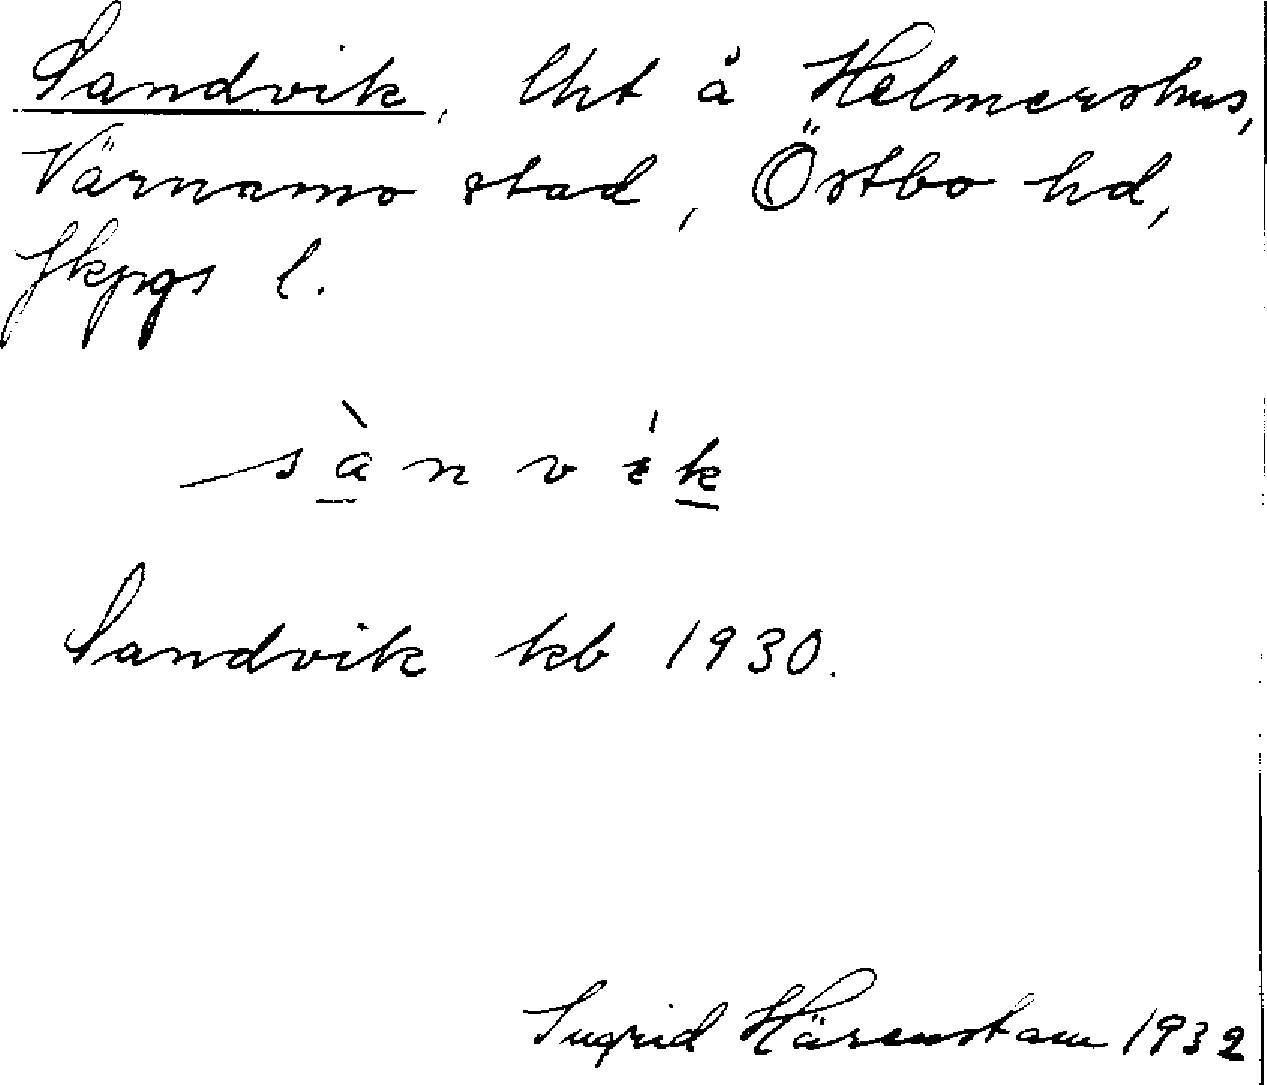 Sandvik, lht å Helmershus,
Värnamo stad, Östbo hd,
Jkpgs l.
sànvik
Sandvik kb 1930.
Ingrid Härenstam 1932